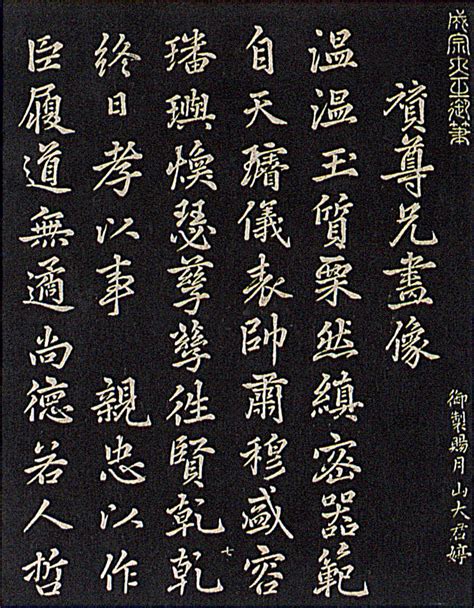 成宗大王御筆
御製賜月山大君婷
贊尊兄畫像
溫溫玉質栗然縝密器範
自天儀表帥肅穆盛容
璠璵煥瑟孳孳徃賢乾乾
終日孝以事 親忠以作
臣履道無尚德若人哲
七